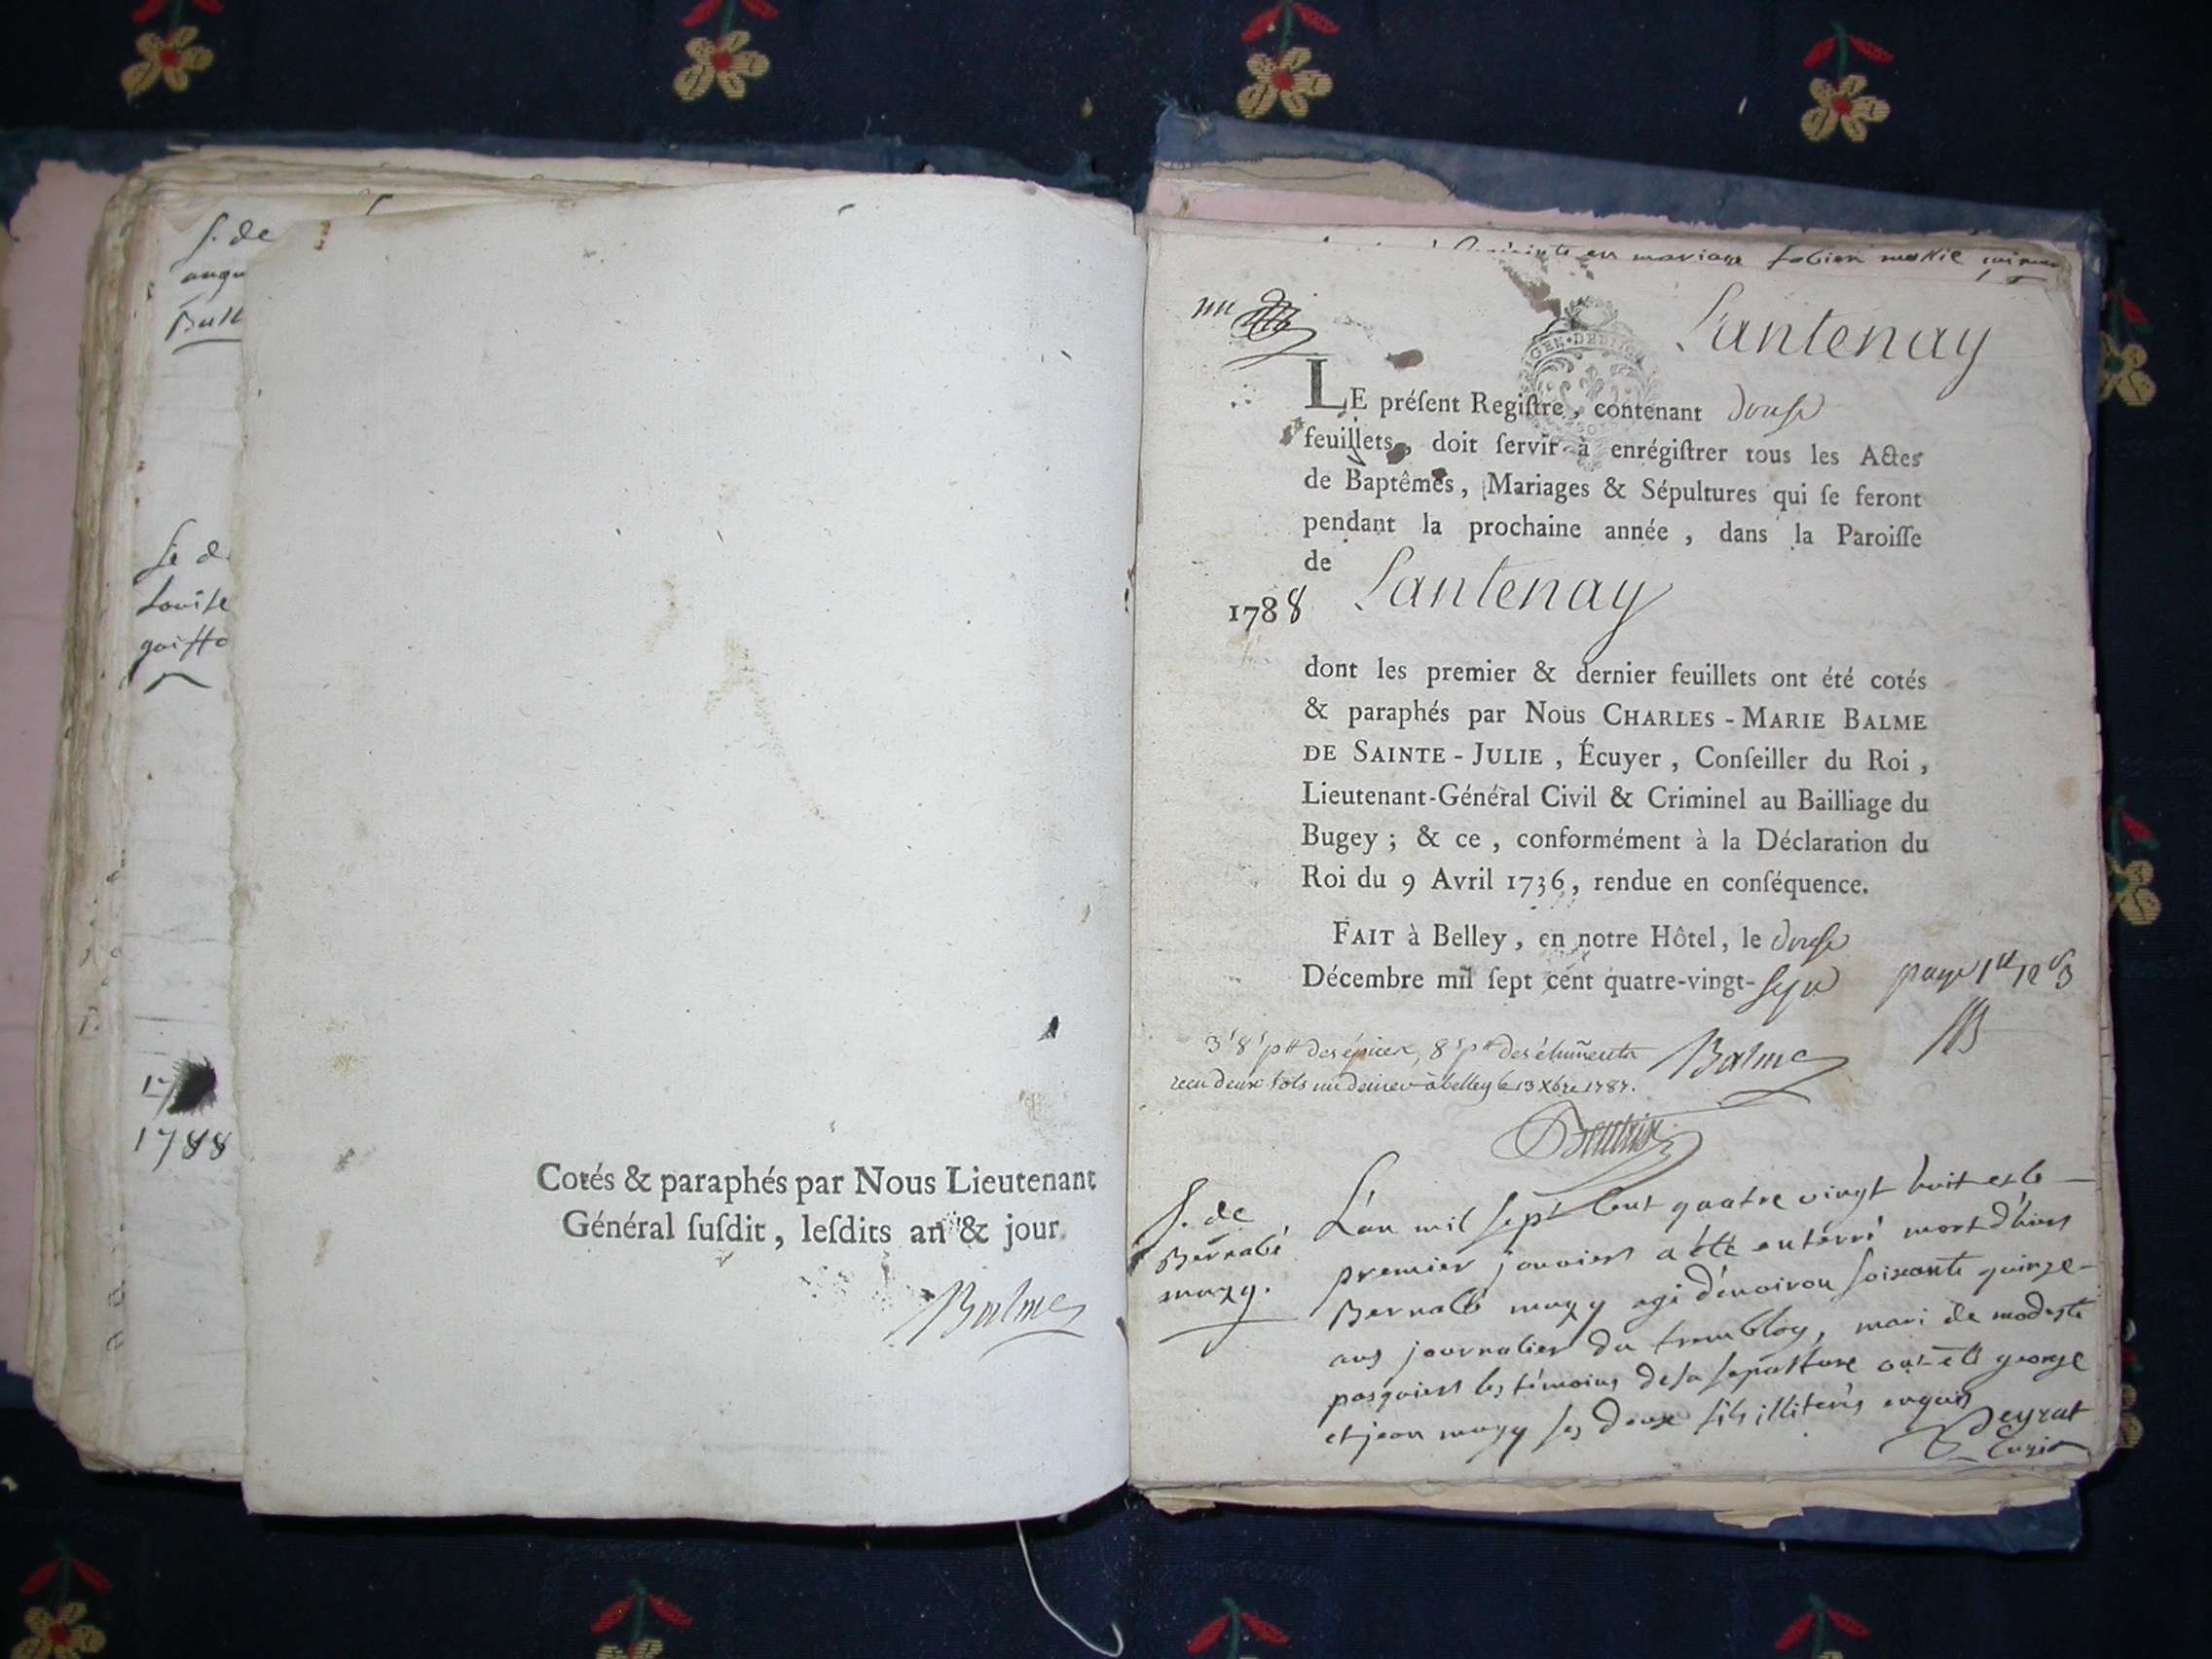 S. de
Se d
Louise
1788
Cotés & paraphés par Nous Lieutenant
Général ſuſdit, leſdits an & jour.
Balme
en mariage
Lantenay
LE préſent Regiſtre, contenant douse
feuillets, doit ſervir à enrégiſtrer tous les Actes
de Baptêmes, Mariages & Sépultures qui ſe feront
pendant la prochaine année, dans la Paroiſſe
de Lantenay
1788
dont les premier & dernier feuillets ont été cotés
& paraphés par Nous CHARLES-MARIE BALME
DE SAINTE-JULIE, Écuyer, Conſeiller du Roi,
Lieutenant-Général Civil & Criminel au Bailliage du
Bugey; & ce, conformément à la Déclaration du
Roi du 9 Avril 1736, rendue en conſéquence.
FAIT à Belley, en notre Hôtel, le douse
Décembre mil ſept cent quatre-vingt-sept
page
Balme
recu deux sols un denier à belley le 13 Xbre 1787.
S. de
Bernabé
muzy.
L'an mil sept cent quatre vingt huit et le
premier janvier a été enterré mort d'hier
Bernabé muzy agé d'environ soixante quinze
ans journalier du tremblay, mari de modeste
pasquier les témoins de sa sepulture ont été george
et jean muzy ses deux fils illiterés enquis